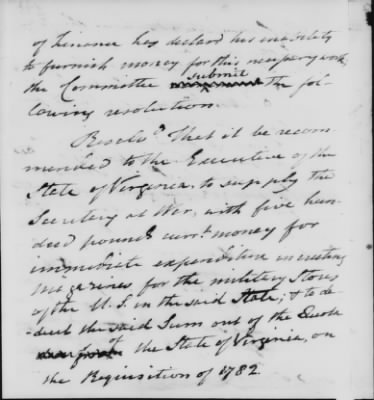 of Finance has declared his inability
to furnish money for this necessary work,
the Committee submit the fol-
lowing resolution.
Resolvd. That it be recom-
mended to the Executive of the
State of Virginia to supply the
Secretary at War, with five hun-
dred pounds currt. money for
immediate expenditure in erecting
magazines for the military Stores
of the U. S. in the said State; & to de-
duct the said Sum out of the Quota
of the State of Virginia, on
the Requisition of 1782